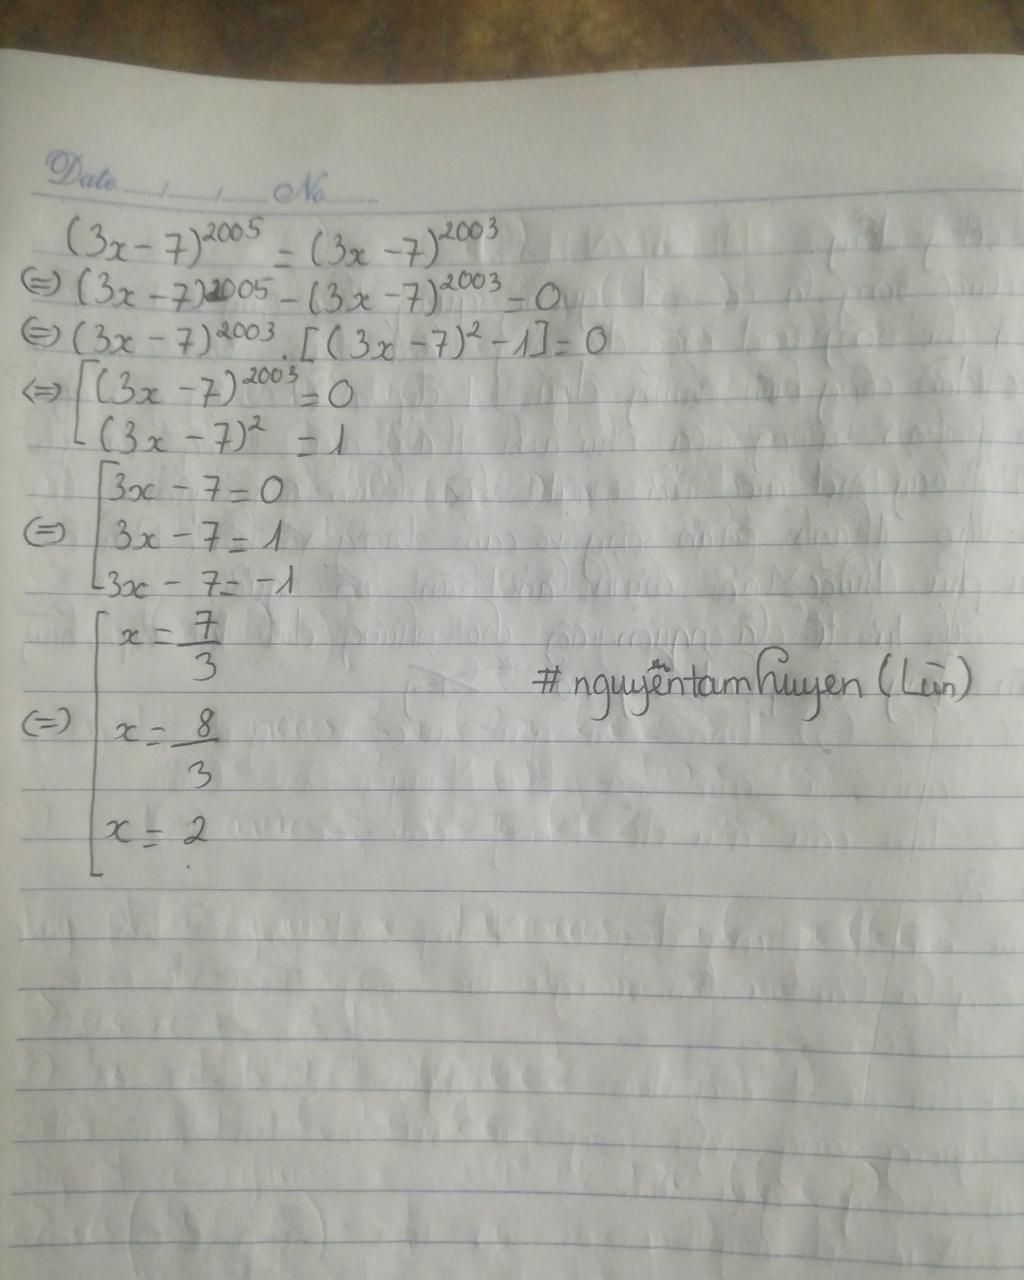 Date....../....../...... No.........
(3x - 7)²⁰⁰⁵ = (3x - 7)²⁰⁰³
(=) (3x - 7)²⁰⁰⁵ - (3x - 7)²⁰⁰³ = 0
(=) (3x - 7)²⁰⁰³ . [(3x - 7)² - 1] = 0
<=> [ (3x - 7)²⁰⁰³ = 0
(3x - 7)² = 1
[ 3x - 7 = 0
(=) 3x - 7 = 1
3x - 7 = -1
[ x = 7/3
(=) x = 8/3
x = 2
# nguyễntamhuyen (Lùn)